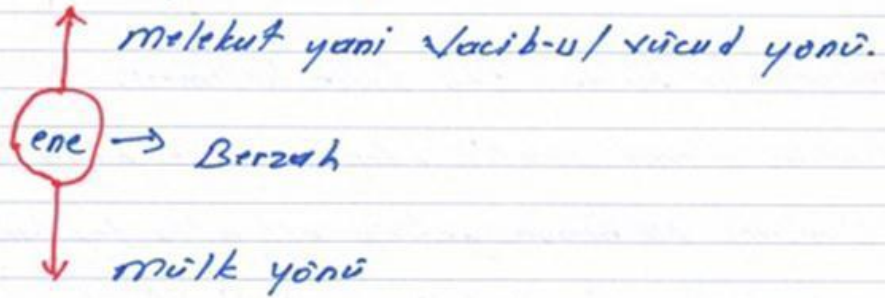 melekut yani Vacib-u/ vücud yönü.
ene → Berzah
mülk yönü